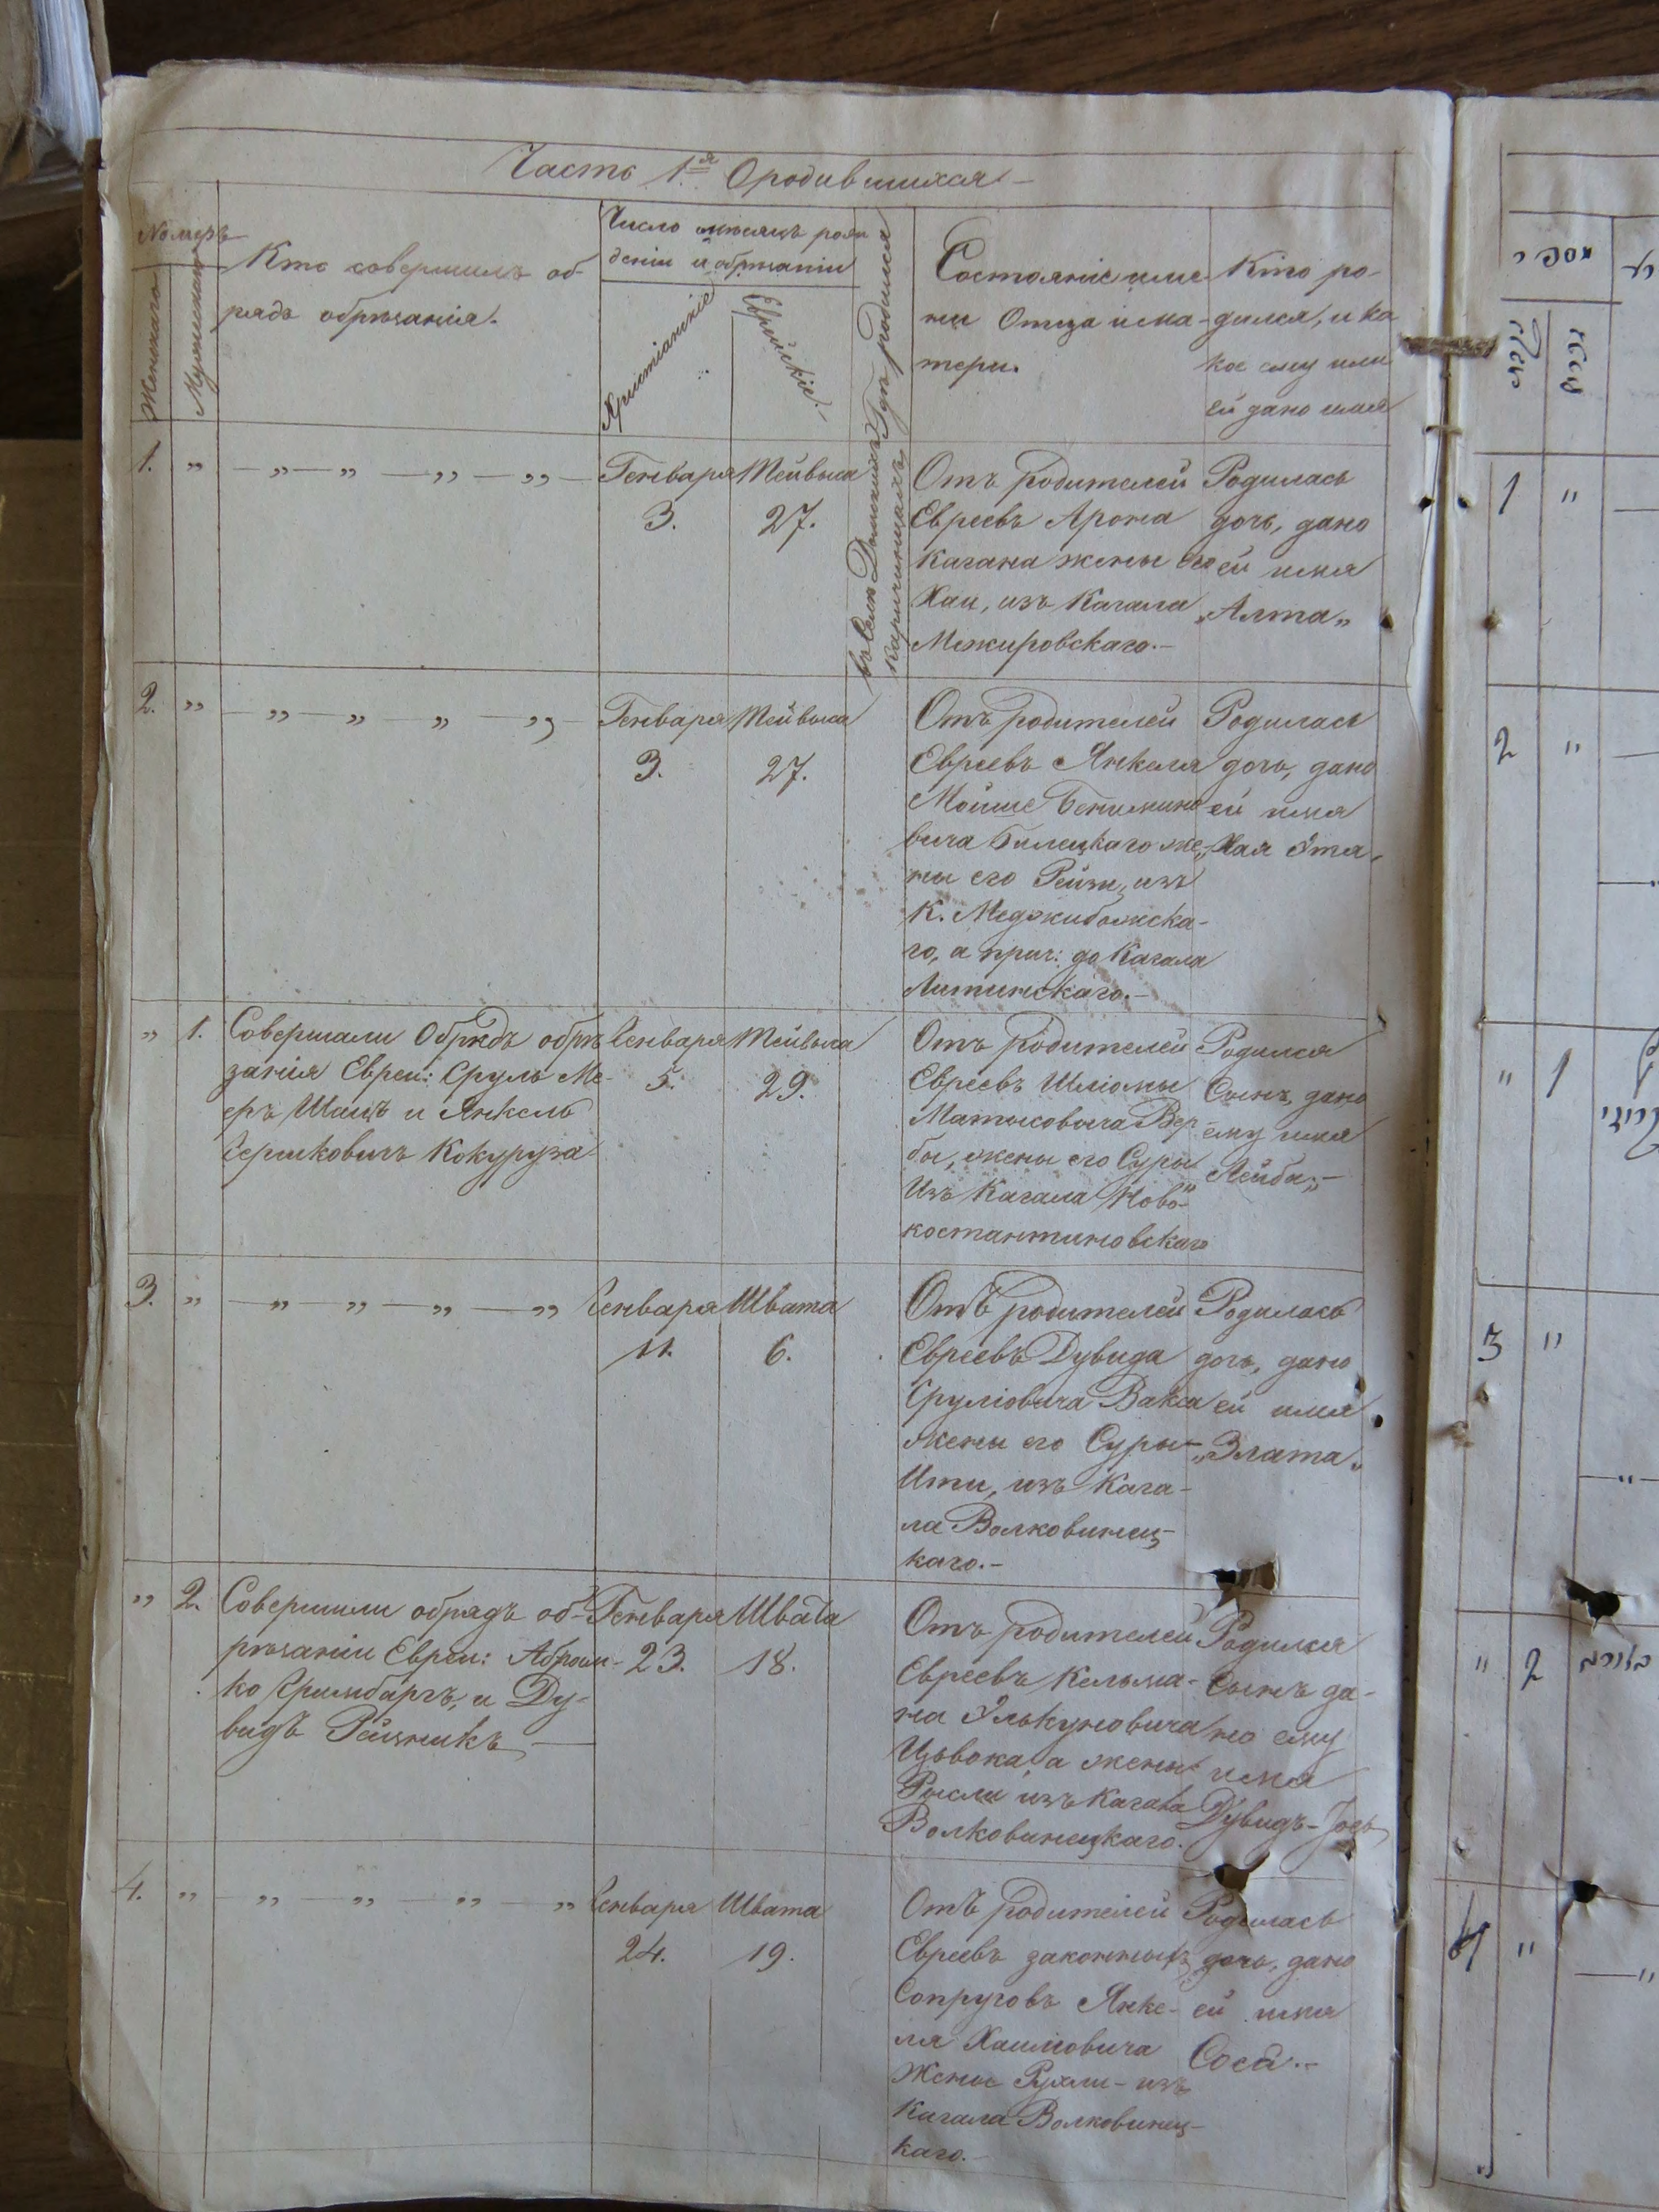 Часть 1.я О родившихся
Номеръ
Женскаго
Мужескаго
Кто совершилъ об-
рядъ обрѣзанія.
Число мѣсяцъ рож
денія и обрѣзанія
Христіанскіе
Еврейскіе
Гдѣ родился
Состояніе име-
ни Отца и ма-
тери.
Кто ро-
дился, и ка
кое ему или
ей дано имя
1. „ — „ — „ — „ — „ —
Генваря
3.
Тейвыса
27.
въ Селѣ
Отъ родителей
Евреевъ Арона
Кагана жены его
Хаи, изъ Кагала
Межировскаго.—
Родилась
дочь, дано
ей имя
„Алта„
2. „ — „ — „ „ — „ —
Генваря
3.
Тейвыса
27.
Отъ родителей
Евреевъ Янкеля
Мойше Бениимино
вича Билецкаго же-
ны его Рейзи, изъ
К. Меджибожска-
го, а прич: до Кагала
Литинскаго.—
Родилась
дочь, дано
ей имя
„Хая Этя„
„ 1. Совершали Обрядъ обрѣ
занія Евреи: Сруль Ме-
еръ Шаицъ и Янкель
Берковичъ Кокуруза
Генваря
5.
Тейвыса
29.
Отъ родителей
Евреевъ Шліомы
Матысовича Вер
бы, жены его Суры
Изъ Кагала Ново-
костантиновскаго
Родился
Сынъ, дано
ему имя
Лейба„—
3. „ — „ — „ — „ — „
Генваря
11.
Швата
6.
Отъ родителей
Евреевъ Дувида
Сруліовича Вакса
жены его Суры—
Ити, изъ Кага-
ла Волковинец-
каго.—
Родилась
дочь, дано
ей имя
„Злата„
„ 2. Совершили обрядъ об-
рѣзаніи Евреи: Абром-
ко Гримбаргъ, и Ду-
видъ Рейзникъ —
Генваря
23.
Швата
18.
Отъ родителей
Евреевъ Кельма-
на Элькуновича
Цывока, а жены
Рысли изъ Кагала
Волковинецкаго.
Родился
Сынъ да-
но ему
имя
Дувидъ-Іось
4. „ — „ — „ — „ — „
Генваря
24.
Швата
19.
Отъ родителей
Евреевъ законныхъ
Супруговъ Янке-
ля Хаимовича
Жены Рухли— изъ
Кагала Волковинец-
каго.—
Родилась
дочь, дано
ей имя
Сося.—
1 "
2 "
" 1
3 "
" 2
4 "